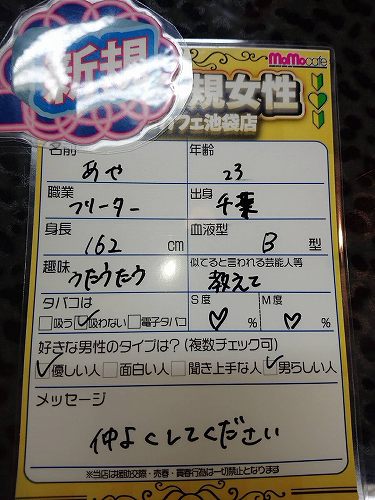 新規
MoMocafe
規女性
フェ池袋店
名前
あや
年齢
23
職業
フリーター
出身
千葉
身長
162 cm
血液型
B 型
趣味
うたうたう
似てると言われる芸能人等
教えて
タバコは
□吸う ☑吸わない □電子タバコ
S度
♡ %
M度
♡ %
好きな男性のタイプは？(複数チェック可)
☑優しい人 □面白い人 □聞き上手な人 ☑男らしい人
メッセージ
仲よくしてください
※当店は援助交際・売春・買春行為は一切禁止となります